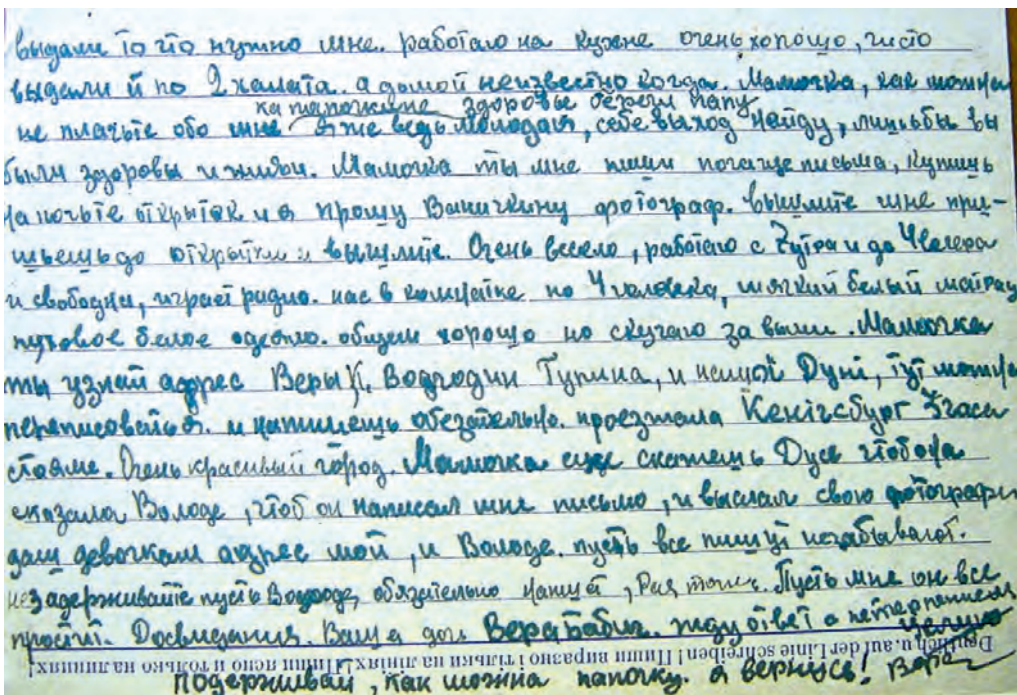 выдали то что нужно мне. работаю на кухне очень хопошо, чисто
выдали й по 2 халата. а домой неизвестно когда. Мамочка, как можна
на папочкине здоровье береги папу
не плачьте обо мне я же ведь молодая, себе выход найду, лишьбы вы
были здоровы и живы. Мамочка ты мне пиши почаще письма, купишь
на почьте открыток и я прошу Ваничкину фотограф. вышлите мне при-
шьешь до открытки и вышлите. Очень весело, работаю с 7 утра и до 4 вечера
и свободни, играет радио. нас в комнатке по 4 человека, мягкий белый матрац
пуховое белое одеяло. общем хорошо но скучаю за вами. Мамочка
ты узнай адрес Веры К. Тупина, и Дуні, тут можна
переписоваться. и напишешь обезательно. проезжала Кенігсбург 3 часа
стояме. Очень красивый город. Мамочка еще скажешь Дусе чтобона
сказала Володе, чтоб он написал мне письмо, и выслал свою фотографи
даш девочкам адрес мой, и Володе. пусть все пишут незабывают.
незадерживайте пусть обязательно пишут, Рая тоже. Пусть мне он все
простит. Досвидания. Ваша доч Вера Бабич. жду ответ с нетерпением
целую
Deutlich u. auf der Linie schreiben! Пиши виразно і тільки на лініях! Пиши ясно и только на линиях!
подерживай, как можна папочку. я вернусь! Вера